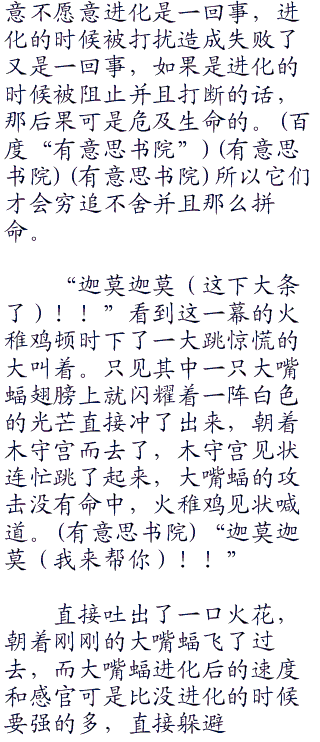 意不愿意进化是一回事，进
化的时候被打扰造成失败了
又是一回事，如果是进化的
时候被阻止并且打断的话，
那后果可是危及生命的。(百
度“有意思书院”)(有意思
书院)(有意思书院)所以它们
才会穷追不舍并且那么拼
命。
“迦莫迦莫（这下大条
了）！！”看到这一幕的火
稚鸡顿时下了一大跳惊慌的
大叫着。只见其中一只大嘴
蝠翅膀上就闪耀着一阵白色
的光芒直接冲了出来，朝着
木守宫而去了，木守宫见状
连忙跳了起来，大嘴蝠的攻
击没有命中，火稚鸡见状喊
道。(有意思书院)“迦莫迦
莫（我来帮你）！！”
直接吐出了一口火花，
朝着刚刚的大嘴蝠飞了过
去，而大嘴蝠进化后的速度
和感官可是比没进化的时候
要强的多，直接躲避